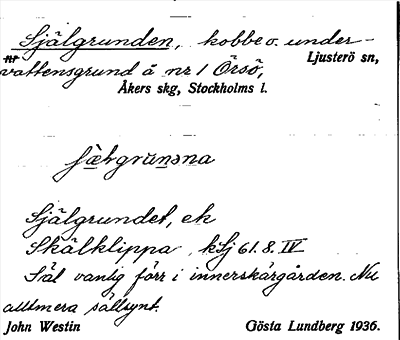 Själgrunden, kobbe o. under-
Ljusterö sn,
vattensgrund å nr 1 Örsö,
Åkers skg, Stockholms l.
Själgrundet, ek
Skälklippa kSj 61.8. IV
Säl vanlig förr i innerskärgården. Nu
alltmera sällsynt.
John Westin Gösta Lundberg 1936.